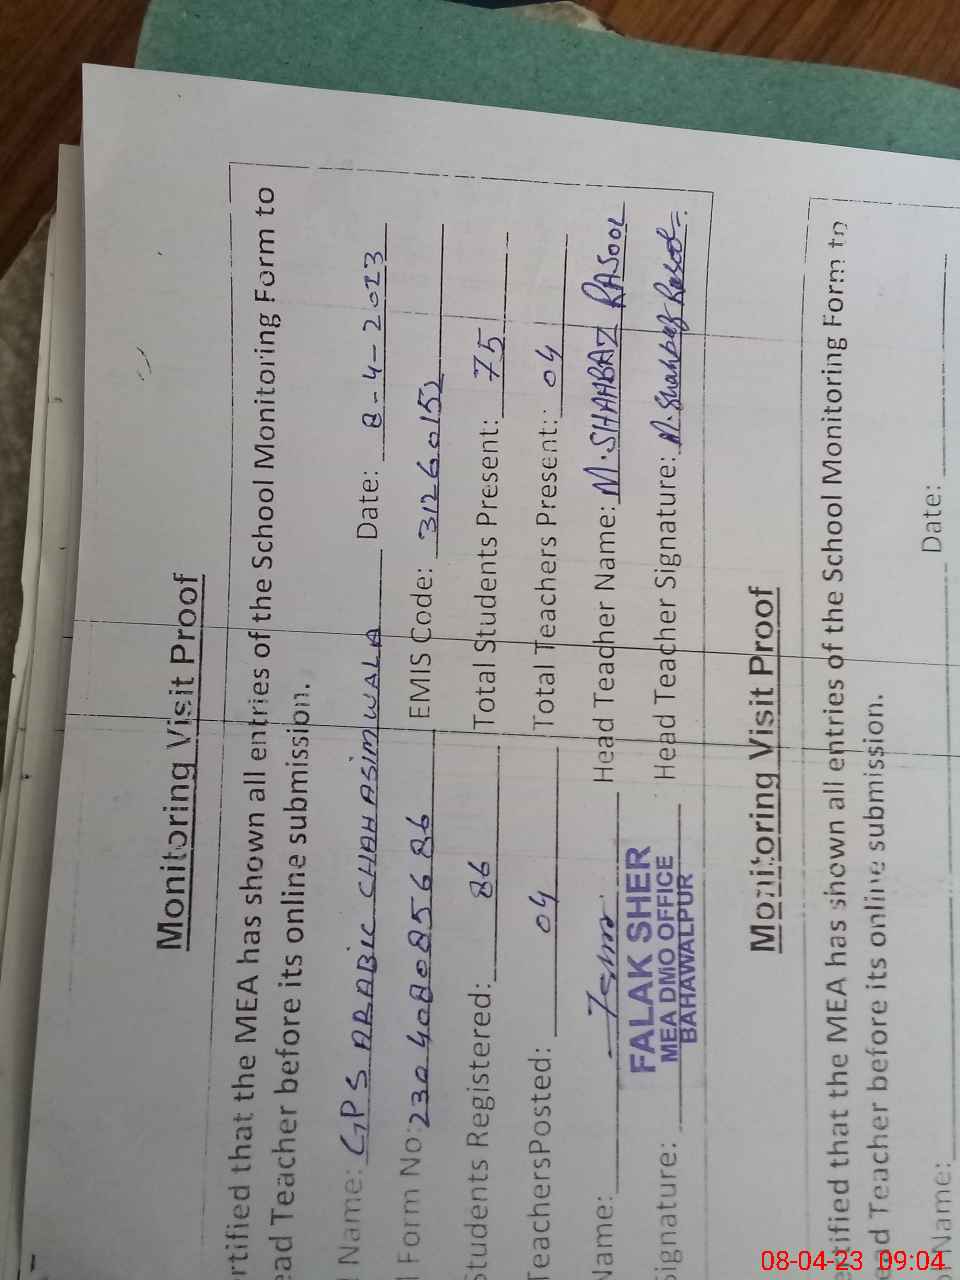 Monitoring Visit Proof
rtified that the MEA has shown all entries of the School Monitoring Form to
ead Teacher before its online submission.
l Name: GPS ARABIC CHAH ASIM WALA Date: 8-4-2023
l Form No: 230408085686 EMIS Code: 31260152
Students Registered: 86 Total Students Present: 75
TeachersPosted: 04 Total Teachers Present: 04
Name: Head Teacher Name: M. SHAHBAZ RASOOL
Signature: Head Teacher Signature: M. Shahbaz Rasool
FALAK SHER
MEA DMO OFFICE
BAHAWALPUR
Monitoring Visit Proof
ertified that the MEA has shown all entries of the School Monitoring Form to
ead Teacher before its online submission.
ol Name: Date:
08-04-23 09:04